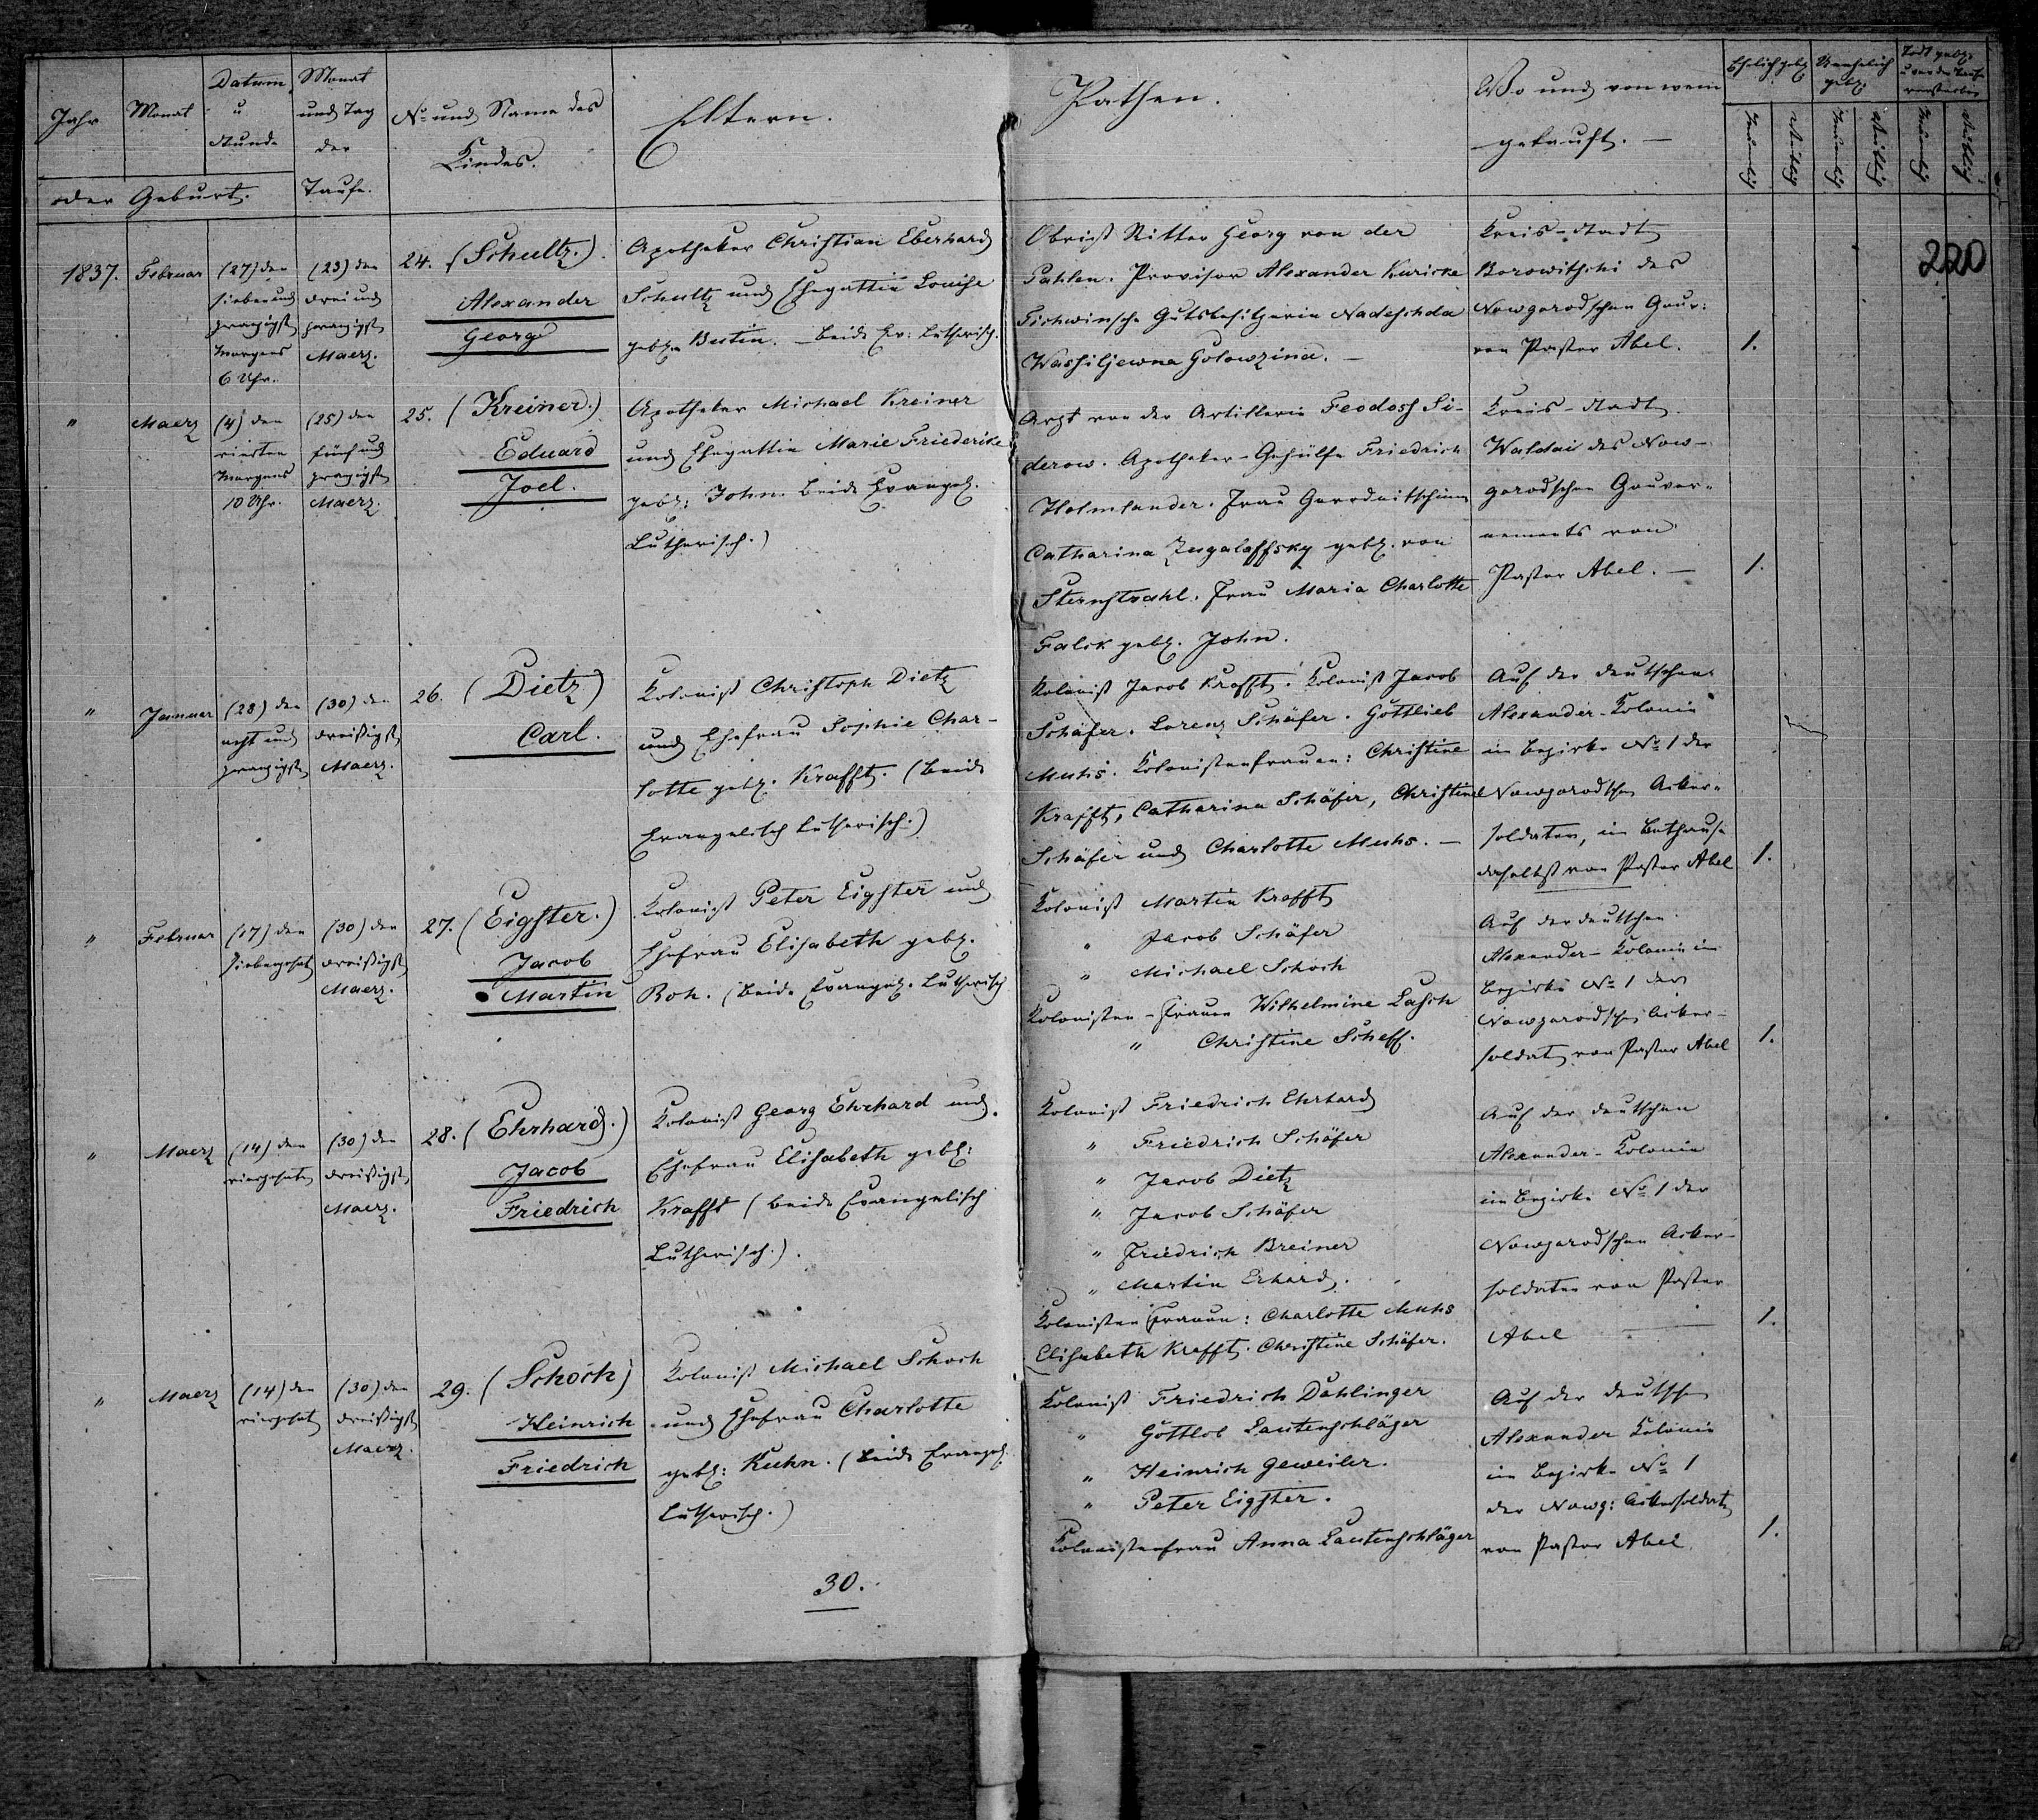 Jahr
Monat
Datum
u
Stunde
der Geburt.
Monat
und Tag
der
Taufe.
No und Name des
Kindes.
Eltern.
Pathen.
Wo und von wem
getauft. —
Ehelich geb.
Unehelich
geb.
Todt geb.
u vor der Taufe
verstorben
männlich
weiblich
männlich
weiblich
männlich
weiblich
220
1837. Februar
(27) den
sieben und
zwanzigst
Morgens
6 Uhr.
(23) den
drei und
zwanzigst
Maerz.
24. (Schultz.)
Alexander
Georg
Apotheker Christian Eberhard
Schultz und Ehegattin Louise
geb. Bestin. — beide Ev. Lutherisch.
Obrist Ritter Georg von der
Pahlen. Provisor Alexander Kuricke
Tichwinsche Gutsbesitzerin Nadeschda
Wassiljewna Golowzina. —
Kreis-Stadt
Borowitschi des
Nowgorodschen Gouv:
von Pastor Abel.
1.
" Maerz
(4) den
vierten
Morgens
10 Uhr.
(25) den
fünf und
zwanzigst
Maerz.
25. (Kreiner.)
Eduard
Joel.
Apotheker Michael Kreiner
und Ehegattin Marie Friederike
geb: John. beide Evangel.
Lutherisch.)
Arzt von der Artillerie Feodoss Si-
derow. Apotheker-Gehülfe Friedrich
Holmlander. Frau Gorodnitschin
Catharina Zugaloffsky geb. von
Sternstrahl. Frau Maria Charlotte
Falck geb. John.
Kreis-Stadt
Waldai des Now-
gorodschen Gouver-
nements von
Pastor Abel. —
1.
" Januar
(28) den
acht und
zwanzigst
(30) den
dreißigst
Maerz.
26. (Dietz)
Carl.
Kolonist Christoph Dietz
und Ehefrau Sophie Char-
lotte geb. Krafft. (beide
Evangelisch Lutherisch.)
Kolonist Jacob Krafft. Kolonist Jacob
Schäfer. Lorenz Schäfer. Gottlieb
Muhs. Kolonistenfrauen: Christine
Krafft, Catharina Schäfer, Christine
Schäfer und Charlotte Muhs. —
Auf der deutschen
Alexander-Kolonie
im Bezirke No 1 der
Nowgorodschen Acker-
soldaten, im Bethause
daselbst von Pastor Abel
1.
" Februar
(17) den
siebenzehnt
(30) den
dreißigst
Maerz.
27. (Eigster.)
Jacob
Martin
Kolonist Peter Eigster und
Ehefrau Elisabeth geb.
Roh. (beide Evangel. Lutherisch
Kolonist Martin Krafft
" Jacob Schäfer
" Michael Schoch
Kolonisten-Frauen Wilhelmine Lasch
" Christine Scheff.
Auf der deutschen
Alexander-Kolonie im
Bezirke No 1 der
Nowgorodschen Acker-
soldat von Pastor Abel
1.
" Maerz
(14) den
vierzehnten
(30) den
dreißigst
Maerz.
28. (Ehrhard.)
Jacob
Friedrich
Kolonist Georg Ehrhard und
Ehefrau Elisabeth geb:
Krafft (beide Evangelisch
Lutherisch.).
Kolonist Friedrich Ehrhard
" Friedrich Schäfer
" Jacob Dietz
" Jacob Schäfer
" Friedrich Breiner
" Martin Erhard.
Kolonisten Frauen: Charlotte Muhs
Elisabeth Krafft. Christine Schäfer.
Auf der deutschen
Alexander-Kolonie
im Bezirke No 1 der
Nowgorodschen Acker-
soldaten von Pastor
Abel —
1.
" Maerz
(14) den
vierzehnt
(30) den
dreißigst
Maerz.
29. (Schoch)
Heinrich
Friedrich
Kolonist Michael Schoch
und Ehefrau Charlotte
geb: Kuhn. (beide Evangel.
Lutherisch.)
Kolonist Friedrich Dahlinger
" Gottlob Lautenschläger
" Heinrich Geweiler.
" Peter Eigster.
Kolonistenfrau Anna Lautenschläger
Auf der deutschen
Alexander Kolonie
im Bezirke No 1
der Nowg: Ackersoldat
von Pastor Abel
1.
30.